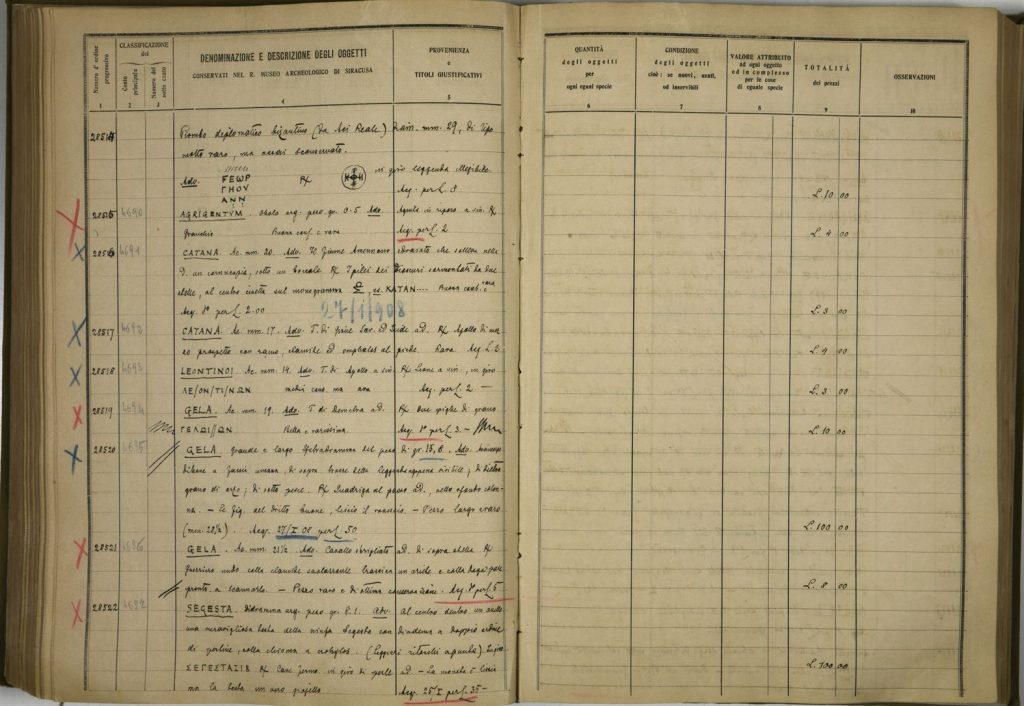 Numero d'ordine progressivo
CLASSIFICAZIONE dei
Conto principale
Numero del sotto conto
DENOMINAZIONE E DESCRIZIONE DEGLI OGGETTI
CONSERVATI NEL R. MUSEO ARCHEOLOGICO DI SIRACUSA
PROVENIENZA
e
TITOLI GIUSTIFICATIVI
1 2 3 4 5
28514 Piombo diplomatico bizantino (da Aci Reale) Diam. mm. 29, di tipo
molto raro, ma assai sconservato.
Adv. ΓΕѠΡ ΓΗΟΥ ΑΝΝ R/ in giro leggenda illegibile
Acq. per L. 8
28515 4690 AGRIGENTVM. Obolo arg. peso gr. 0.5 Adv. Aquila in riposo a sin. R/
Granchio Buona cons. e rara Acq. per L. 2
28516 4691 CATANA. Ae. mm. 20. Adv. Il fiume Amenanos sdraiato che solleva nella
d. un cornucopia, sotto un boccale R/ I pilei dei Dioscuri sormontati da due
stelle, al centro civetta sul monogramma es. KATAN.... Buona cons. e rara
Acq. 1º per L. 2.00
27/1/908
28517 4692 CATANA. Ae. mm. 17. Adv. T. di Giove Ser. ed Iside a d. R/ Apollo di mez
zo prospetto con ramo, ed omphalos al piede. Rara. Acq. L. 2
28518 4693 LEONTINOI. Ae. mm. 14. Adv. T. di Apollo a sin. R/ Leone a sin., in giro
ΛΕ/ΟΝ/ΤΙ/ΝΩΝ rara Acq. per L. 2. —
28519 4694 GELA. Ae. mm. 19. Adv. T. di Demetra a d. R/ Due spighe di grano
ΓΕΛΩΙ/ΩΝ Bella e rarissima. Acq. 1º per L. 3. —
28520 4695 GELA. Grande e largo tetradramma del peso di gr. 15,8. Adv. Androsopo
a faccia umana, di sopra tracce della leggenda appena visibile; di dietro
grano di orzo; di sotto pesce. R/ Quadriga al passo a d., nello sfondo colon-
na. — Le fig. del dritto buone, liscio il rovescio. — Pezzo largo e raro
(mm. 28½). Acq. 27/I 08 per L. 50.
28521 4696 GELA. Ae. mm. 21½ Adv. Cavallo sbrigliato a d. di sopra stella R/
Guerriero nudo colla un ariete e colla daga
pronto a scannarlo. — Pezzo raro e di ottima conservazione. Acq. 1º per L. 5
28522 SEGESTA. Didramma arg. peso gr. 8.1. Adv. Al centro dentro un anello
una meravigliosa testa della ninfa Segesta con diadema a doppio ordine
di perline, colla chioma a crobylos. (Leggieri ritocchi a punta). In giro
ΣΕΓΕΣΤΑΣΙΒ R/ Cane fermo. in giro di perle a d. — La moneta è liscia
ma la testa un vero gioiello Acq. 25/I per L. 35 —
QUANTITÀ
degli oggetti
per
ogni egual specie
CONDIZIONE
degli oggetti
cioè: se nuovi, usati,
od inservibili
VALORE ATTRIBUITO
ad ogni oggetto
ed in complesso
per le cose
di eguale specie
TOTALITÀ
dei prezzi
OSSERVAZIONI
6 7 8 9 10
L. 10 00
L. 4 00
L. 3 00
L. 4 00
L. 3 00
L. 10 00
L. 100 00
L. 8 00
L. 100 00